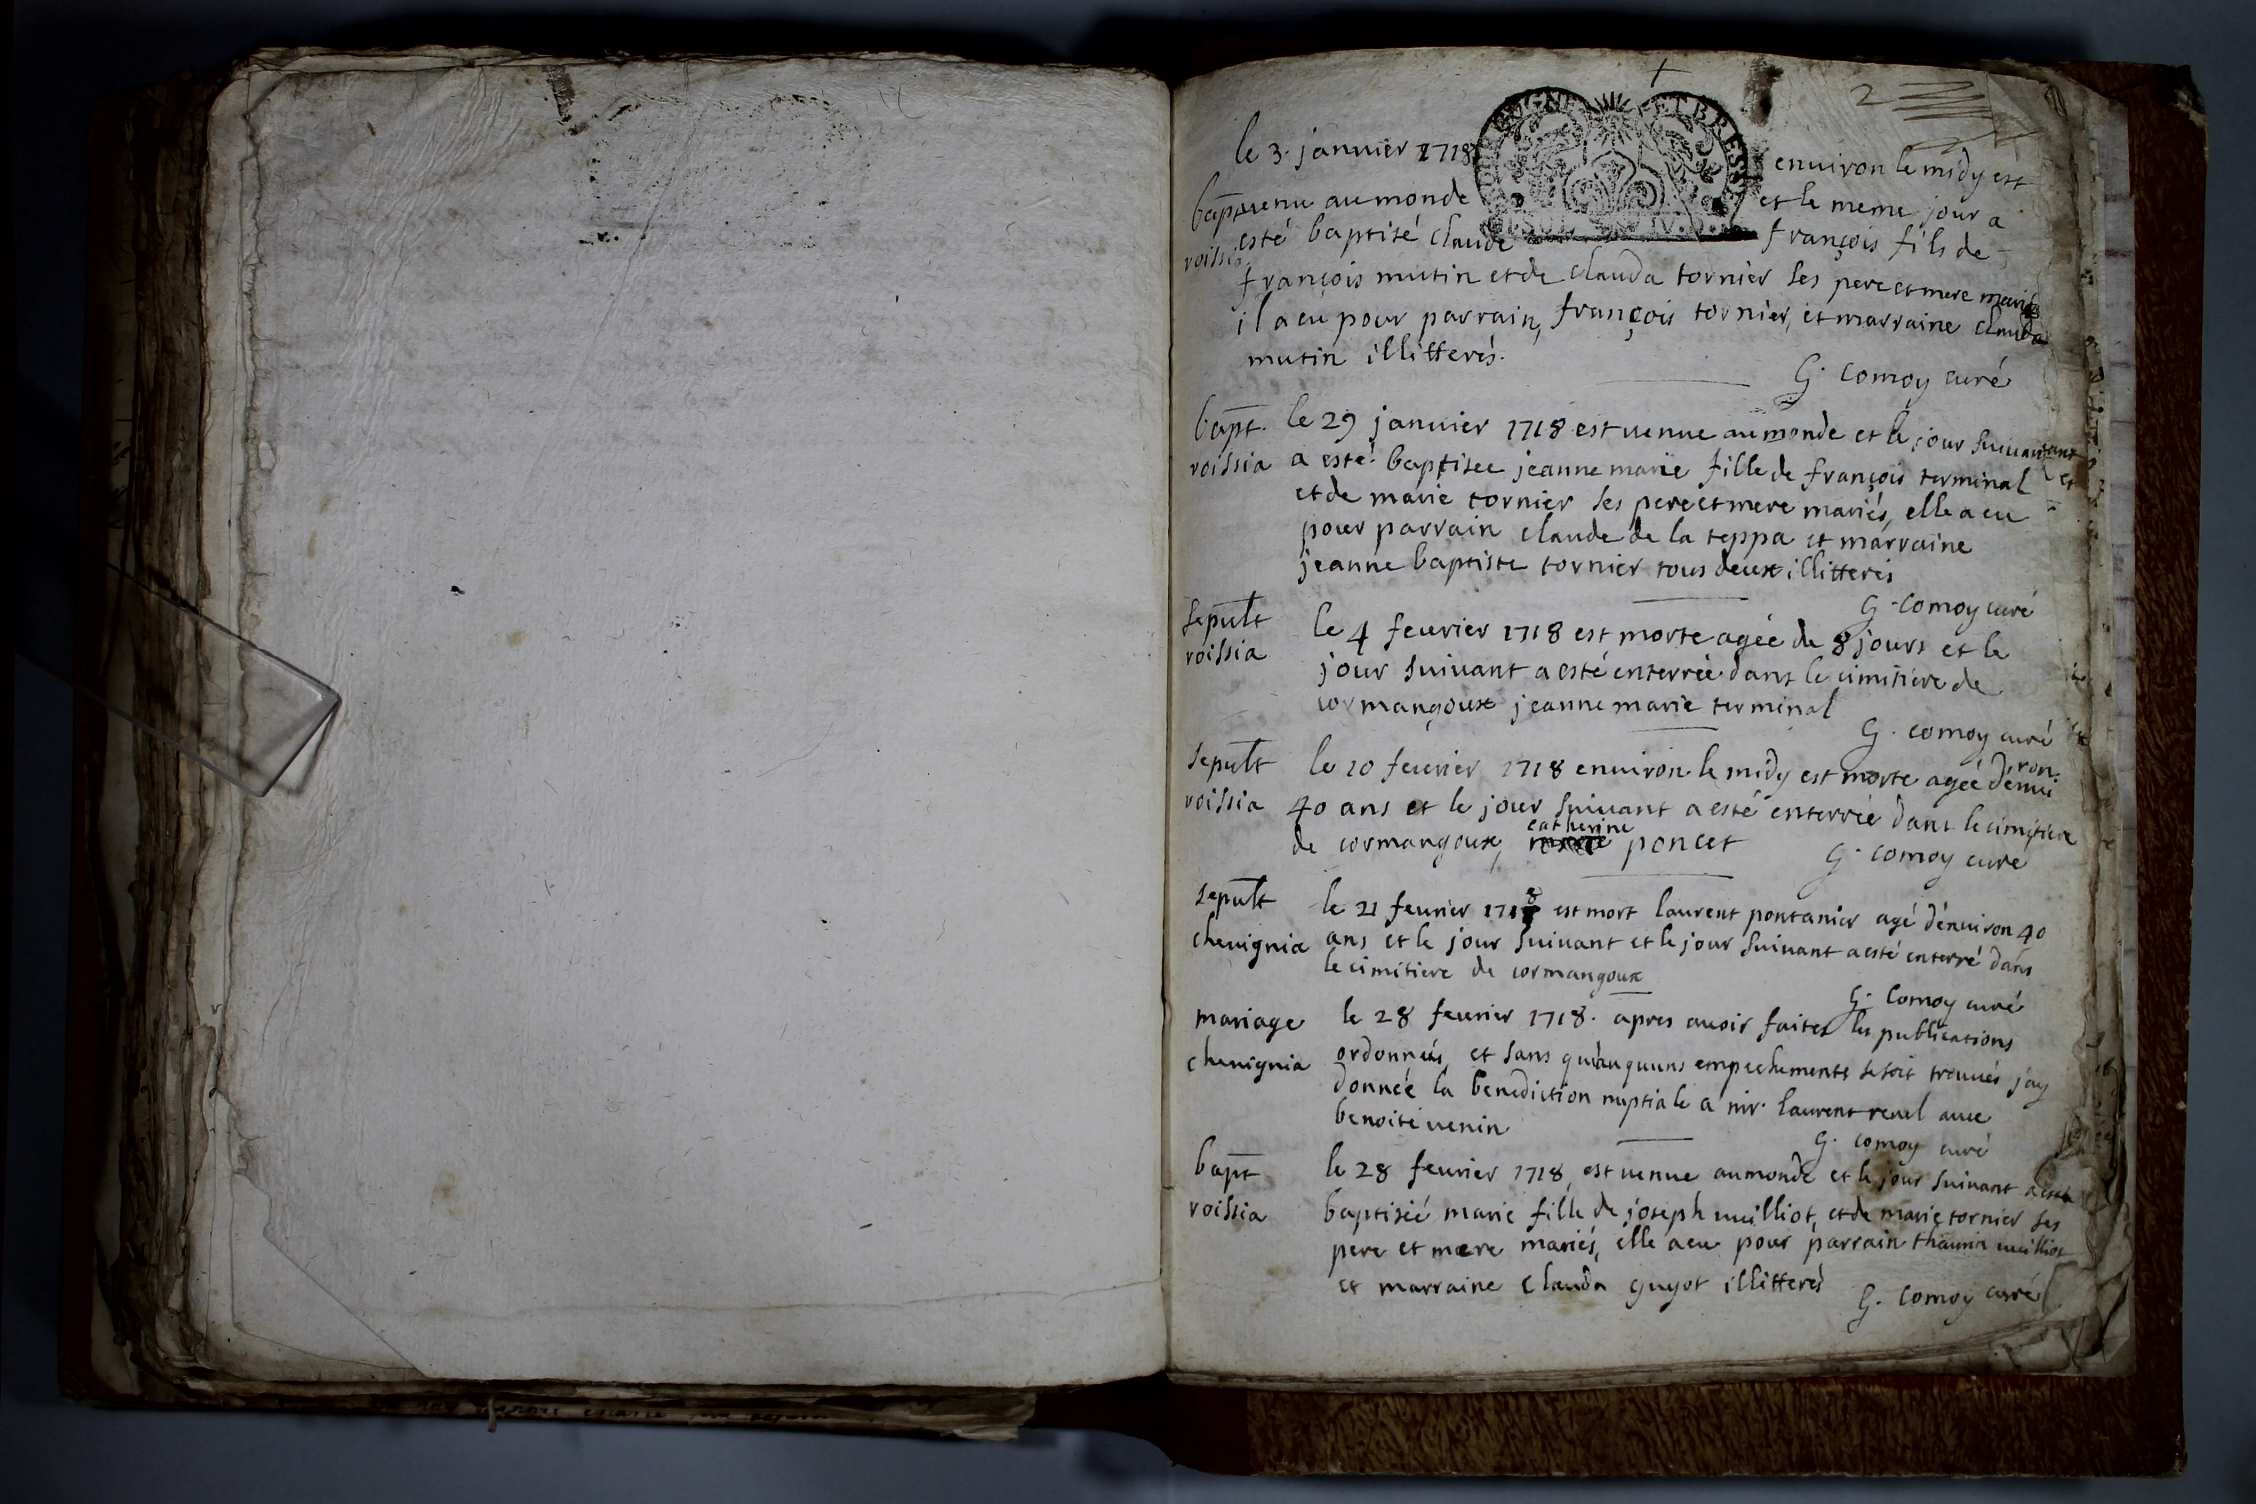 2
le 3. janvier 1718 environ le midy est
bapt venu au monde et le meme jour a
voissia esté baptisé claude françois fils de
françois mutin et de clauda tornier ses pere et mere mariés
il a eu pour parrain, françois tornier, et marraine clauda
mutin illitterés.
G. comoy curé
bapt. le 29 janvier 1718 est venue au monde et le jour suivant
voissia a esté baptisee jeanne marie fille de françois terminal
et de marie tornier ses pere et mere mariés, elle a eu
pour parrain claude de la teppa et marraine
jeanne baptiste tornier tous deux illitterés
G. comoy curé
sepult le 4 feurier 1718 est morte agée de 8 jours et le
voissia jour suivant a esté enterrée dans le cimitiere de
cormangoux jeanne marie terminal
G. comoy curé
sepult le 10 feurier 1718 environ le midy est morte agée d'environ
voissia 40 ans et le jour suivant a esté enterrée dans le cimitiere
de cormangoux, catherine poncet
G. comoy curé
sepult le 21 feurier 1718 est mort laurent pontanier agé d'environ 40
chevignia ans et le jour suivant et le jour suivant a esté enterré dans
le cimitiere de cormangoux
G. comoy curé
mariage le 28 feurier 1718. apres avoir faites les publications
chevignia ordonnées, et sans qu'auquuns empechements se soit trouvés j'ay
donnée la benediction nuptiale a mr. laurent revel avec
benoite venin
G. comoy curé
bapt le 28 feurier 1718, est venue au monde et le jour suivant a esté
voissia baptisée marie fille de joseph vuilliot, et de marie tornier ses
pere et mere mariés, elle a eu pour parrain thaurin vuilliot
et marraine clauda guyot illitterés
G. comoy curé